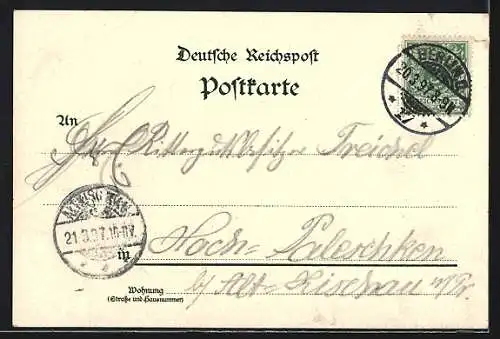 Deutsche Reichspost
Postkarte
BERLIN
20.3.97. 8-9N.
An
Rittergutsbesitzer Treichel
21.3.97.10-11V.
in Hoch-Paleschken
b/ Alt-Kischau W/Pr.
Wohnung
(Straße und Hausnummer)